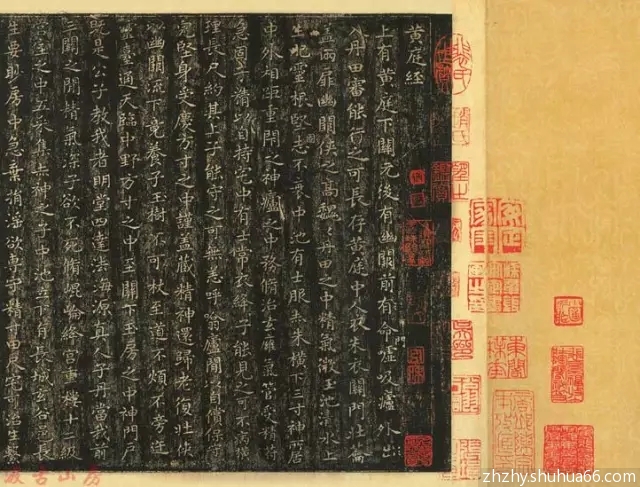 黄庭經
上有黄庭下關元後有幽闕前有命廬吸廬外出
入丹田審能行之可長存黄庭中人衣朱衣關門壮籥
盖兩扉幽闕俠之高魏丹田之中精氣微玉池清水上
生肥靈根堅志不衰中池有士服赤朱横下三寸神所居
中外相距重閉之神廬之中務脩治玄膺氣管受精符
急固子精以自持宅中有士常衣絳子能見之可不病横
理長尺約其上子能守之可無恙呼噏廬間以自償保守
完堅身受慶方寸之中謹盖藏精神還歸老復壮俠
以幽闕流下竟養子玉樹不可杖至道不煩不旁迕
靈臺通天臨中野方寸之中至關下玉房之中神門戶
既是公子教我者明堂四達法海源真人子丹當我前
三關之間精氣深子欲不死脩崑崙絳宫重樓十二級
宫室之中五采集赤神之子中池立下有長城玄谷邑長
生要眇房中急棄捐淫欲專守精寸田尺宅可治生繫
zhzhy.shuhua66.com